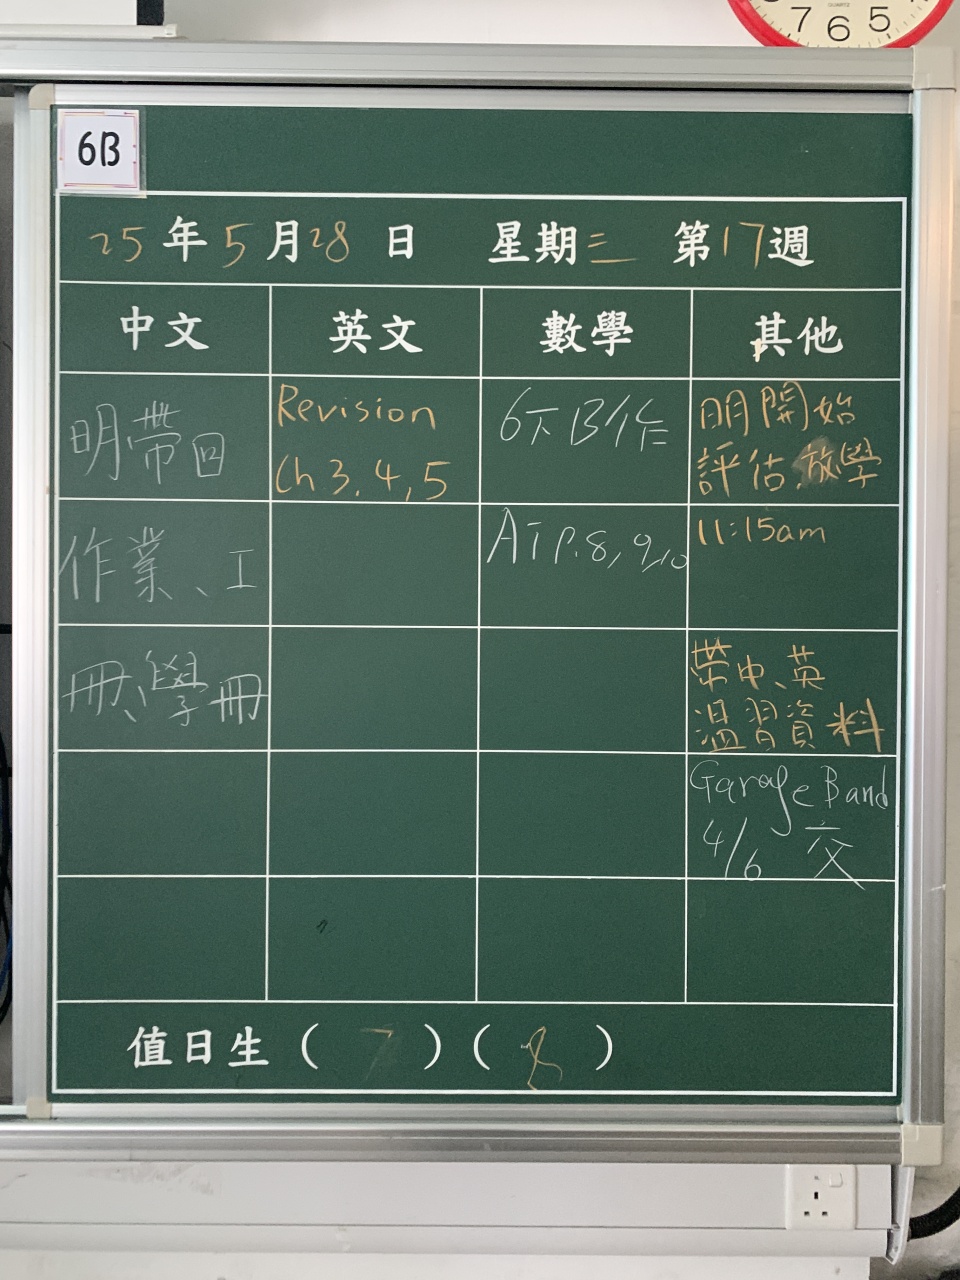 7 6 5
QUARTZ
6B
25年5月28日 星期三 第17週
中文 英文 數學 其他
明帶回
作業、工
冊、學冊
Revision
Ch 3, 4, 5
6下B作
AT P.8, 9, 10
明開始
評估,放學
11:15am
帶中、英
溫習資料
GarageBand
4/6 交
值日生 ( 7 ) ( 8 )